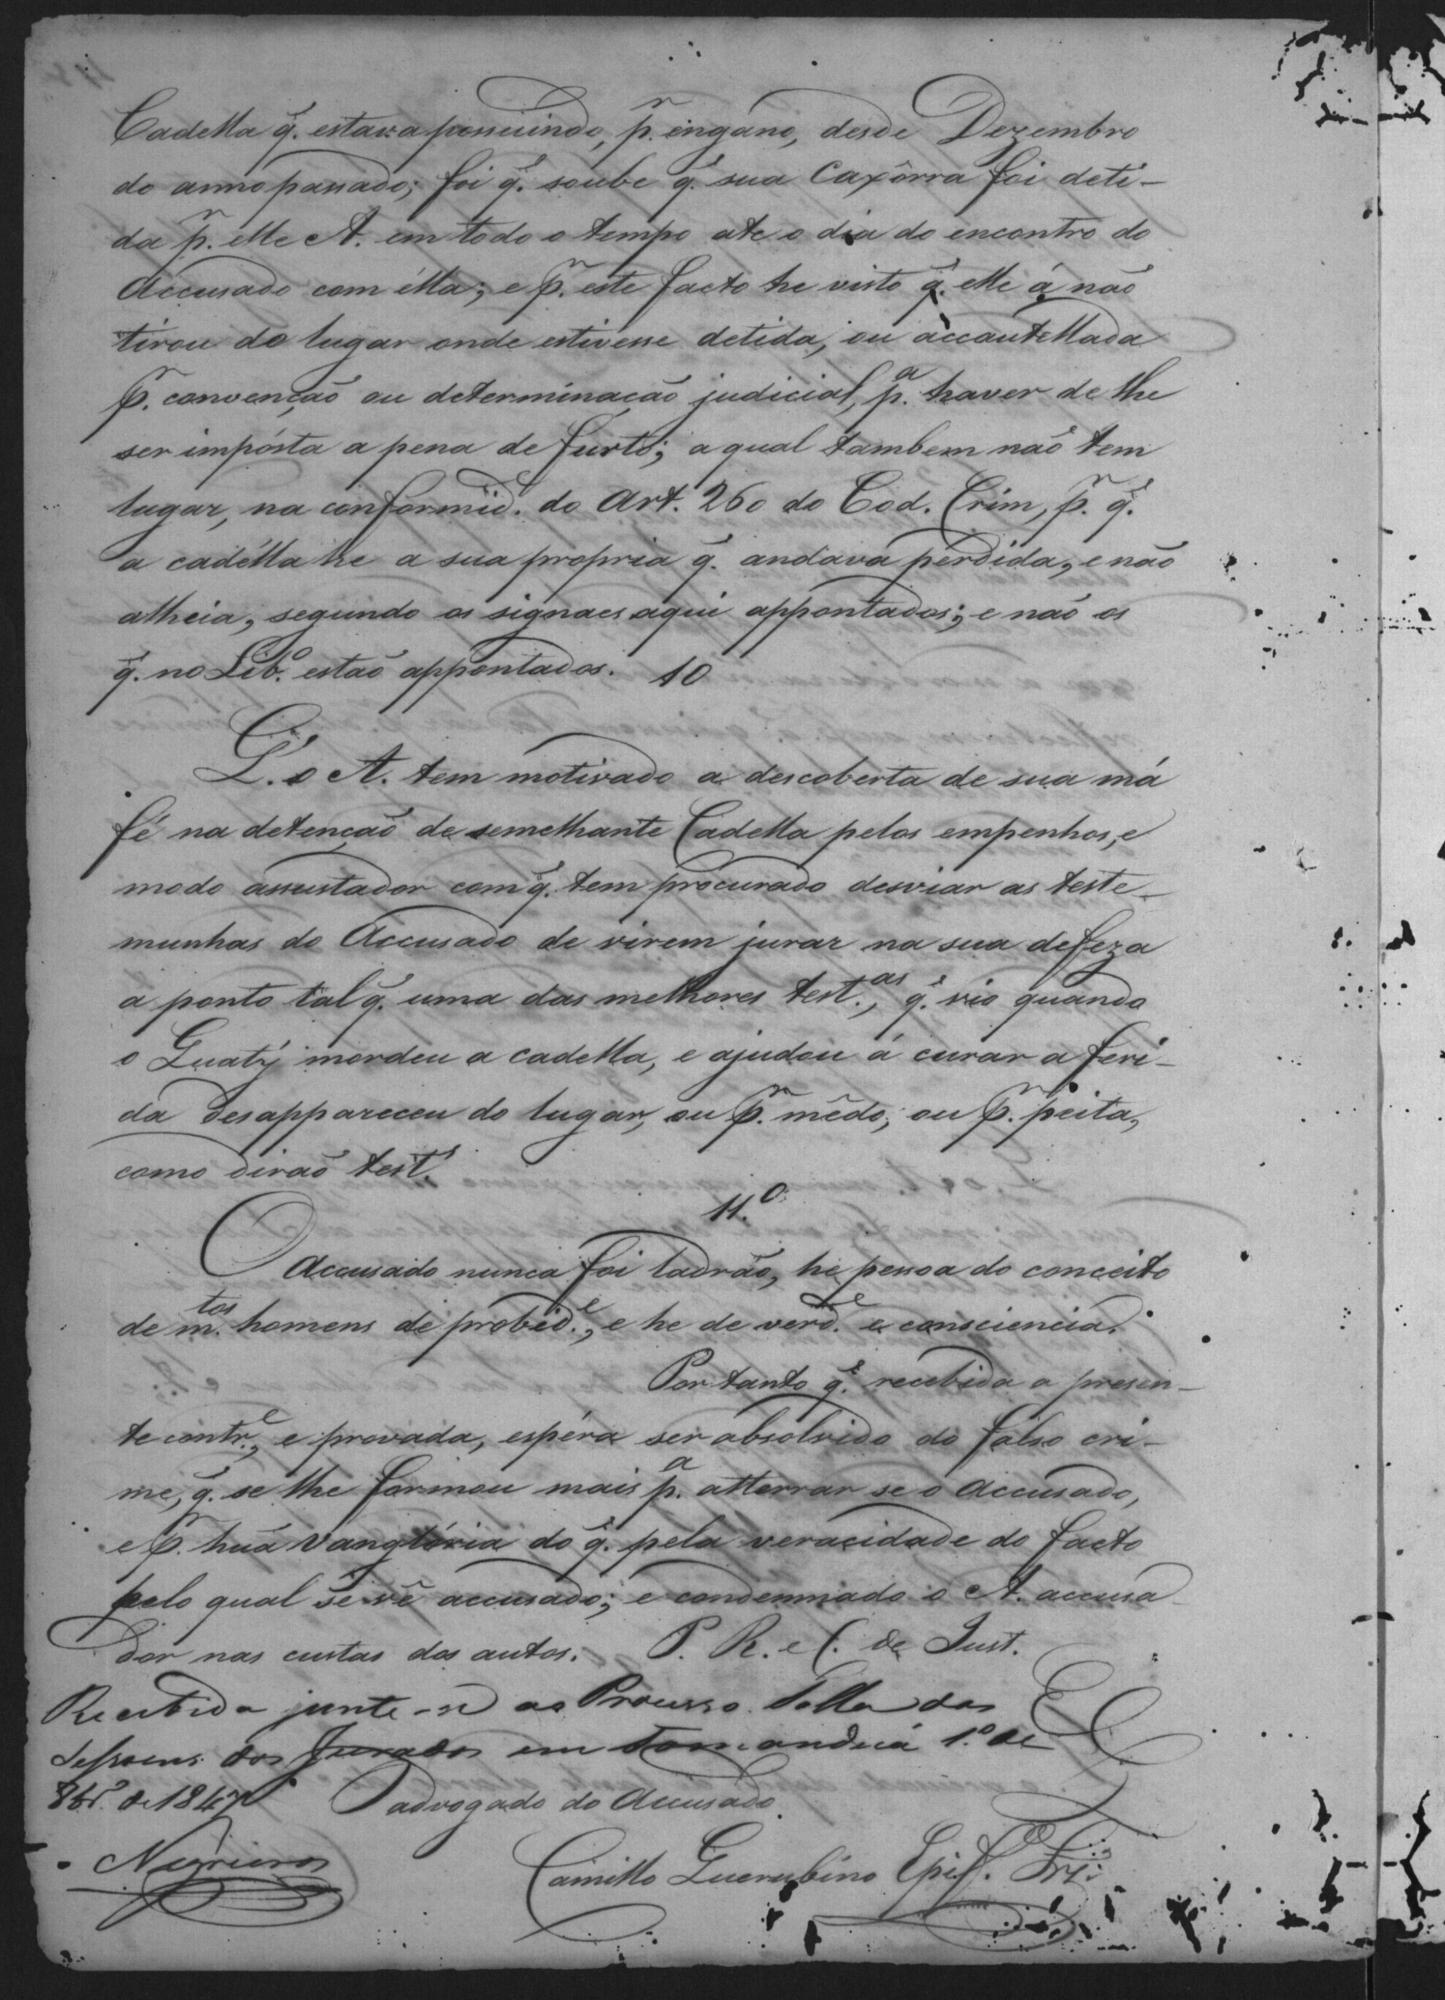 Cadella q̃. estava possuindo, p.r engano, desde Dezembro
do anno passado; foi q̃. soube q̃. sua Caxôrra foi deti-
da p.r elle A. em todo o tempo até o dia do encontro do
Accusado com élla; e p.r este facto he visto q̃. elle á não
tirou do lugar onde estivesse detida, ou accautellada
p.r convenção ou determinação judicial, p.a haver de lhe
ser impósta a pena de furto; a qual tambem não tem
lugar, na conformid.e do Art. 260 do Cod. Crim, p.r q̃.
a cadélla he a sua propria q̃. andava perdida, e não
alheia, segundo os signaes aqui appontados; e não os
q̃. no Lib.o estão appontados. 10
Q̃. o A. tem motivado a descoberta de sua má
fé na detenção de semelhante Cadella pelos empenhos, e
modo assustador com q̃. tem procurado desviar as teste-
munhas do Accusado de virem jurar na sua defeza
a ponto tal q̃. uma das melhores test.as, q̃. vio quando
o Quatÿ mordeu a cadella, e ajudou á curar a feri-
da desappareceu do lugar, ou p.r mêdo, ou p.r peita,
como dirão test.s
11.o
O Accusado nunca foi ladrão, he pessoa do conceito
de m.tos homens de probid.e, e he de verd.e e consciencia.
Portanto q̃. recebida a presen-
te contr.e, e provada, espéra ser absolvido do falso cri-
me, q̃. se lhe formou mais p.a atterrar se o Accusado,
e p.r huã vanglória do q̃. pela veracidade do facto
pelo qual se vê accusado; e condemnado o A. accusa
dor nas custas dos autos. P. R. e C. de Just.
Recebida junte-se ao Processo. Salla das
Sessoens dos Jurados em 1.o de
8br.o de 1847
O advogado do Accusado
Negreiros
Camillo Querubino Epif.